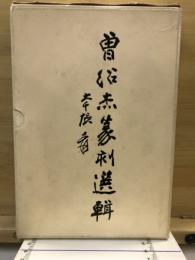 曾紹杰篆刻選輯
大千張爰